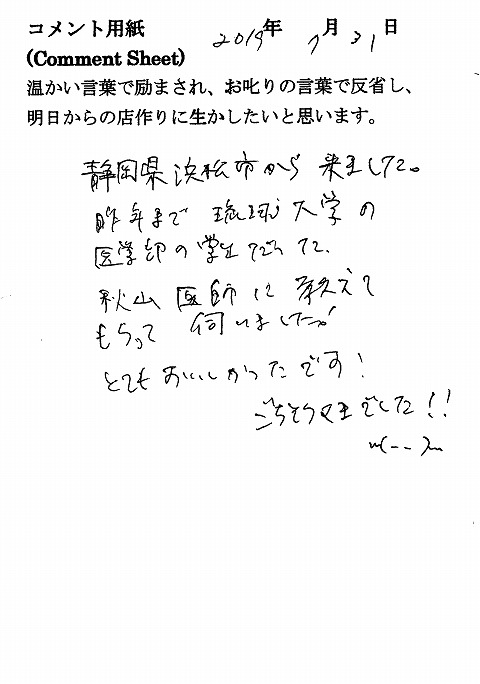 コメント用紙 2019年 7月 31日
(Comment Sheet)
温かい言葉で励まされ、お叱りの言葉で反省し、
明日からの店作りに生かしたいと思います。
静岡県浜松市から 来ました。
昨年まで 琉球大学の
医学部の学生でした。
秋山 医師に 教えて
もらって 伺いましたが
とても おいしかったです!
ごちそうさまでした!!
m(--)m